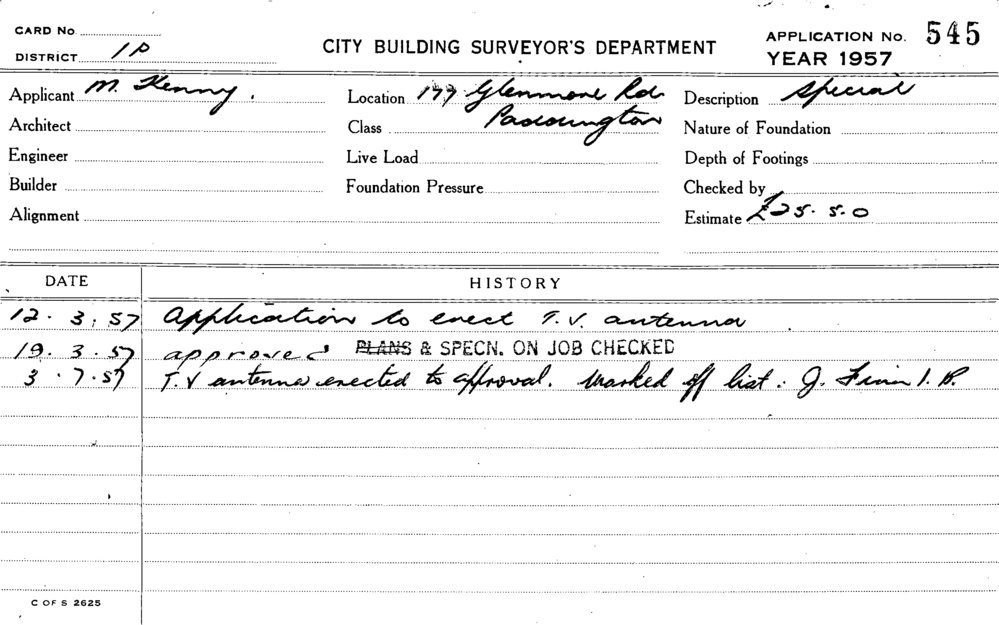 CARD No
DISTRICT 1P
CITY BUILDING SURVEYOR'S DEPARTMENT
APPLICATION No. 545
YEAR 1957
Applicant M. Kenny.
Architect
Engineer
Builder
Alignment
Location 177 Glenmore Rd
Paddington
Class
Live Load
Foundation Pressure
Description Special
Nature of Foundation
Depth of Footings
Checked by
Estimate £25.5.0
DATE HISTORY
12.3.57 Application to erect T.V. antenna
19.3.57 approved PLANS & SPECN. ON JOB CHECKED
3.7.57 T.V antenna erected to approval. Marked off list. J. 1.P.
C OF S 2625